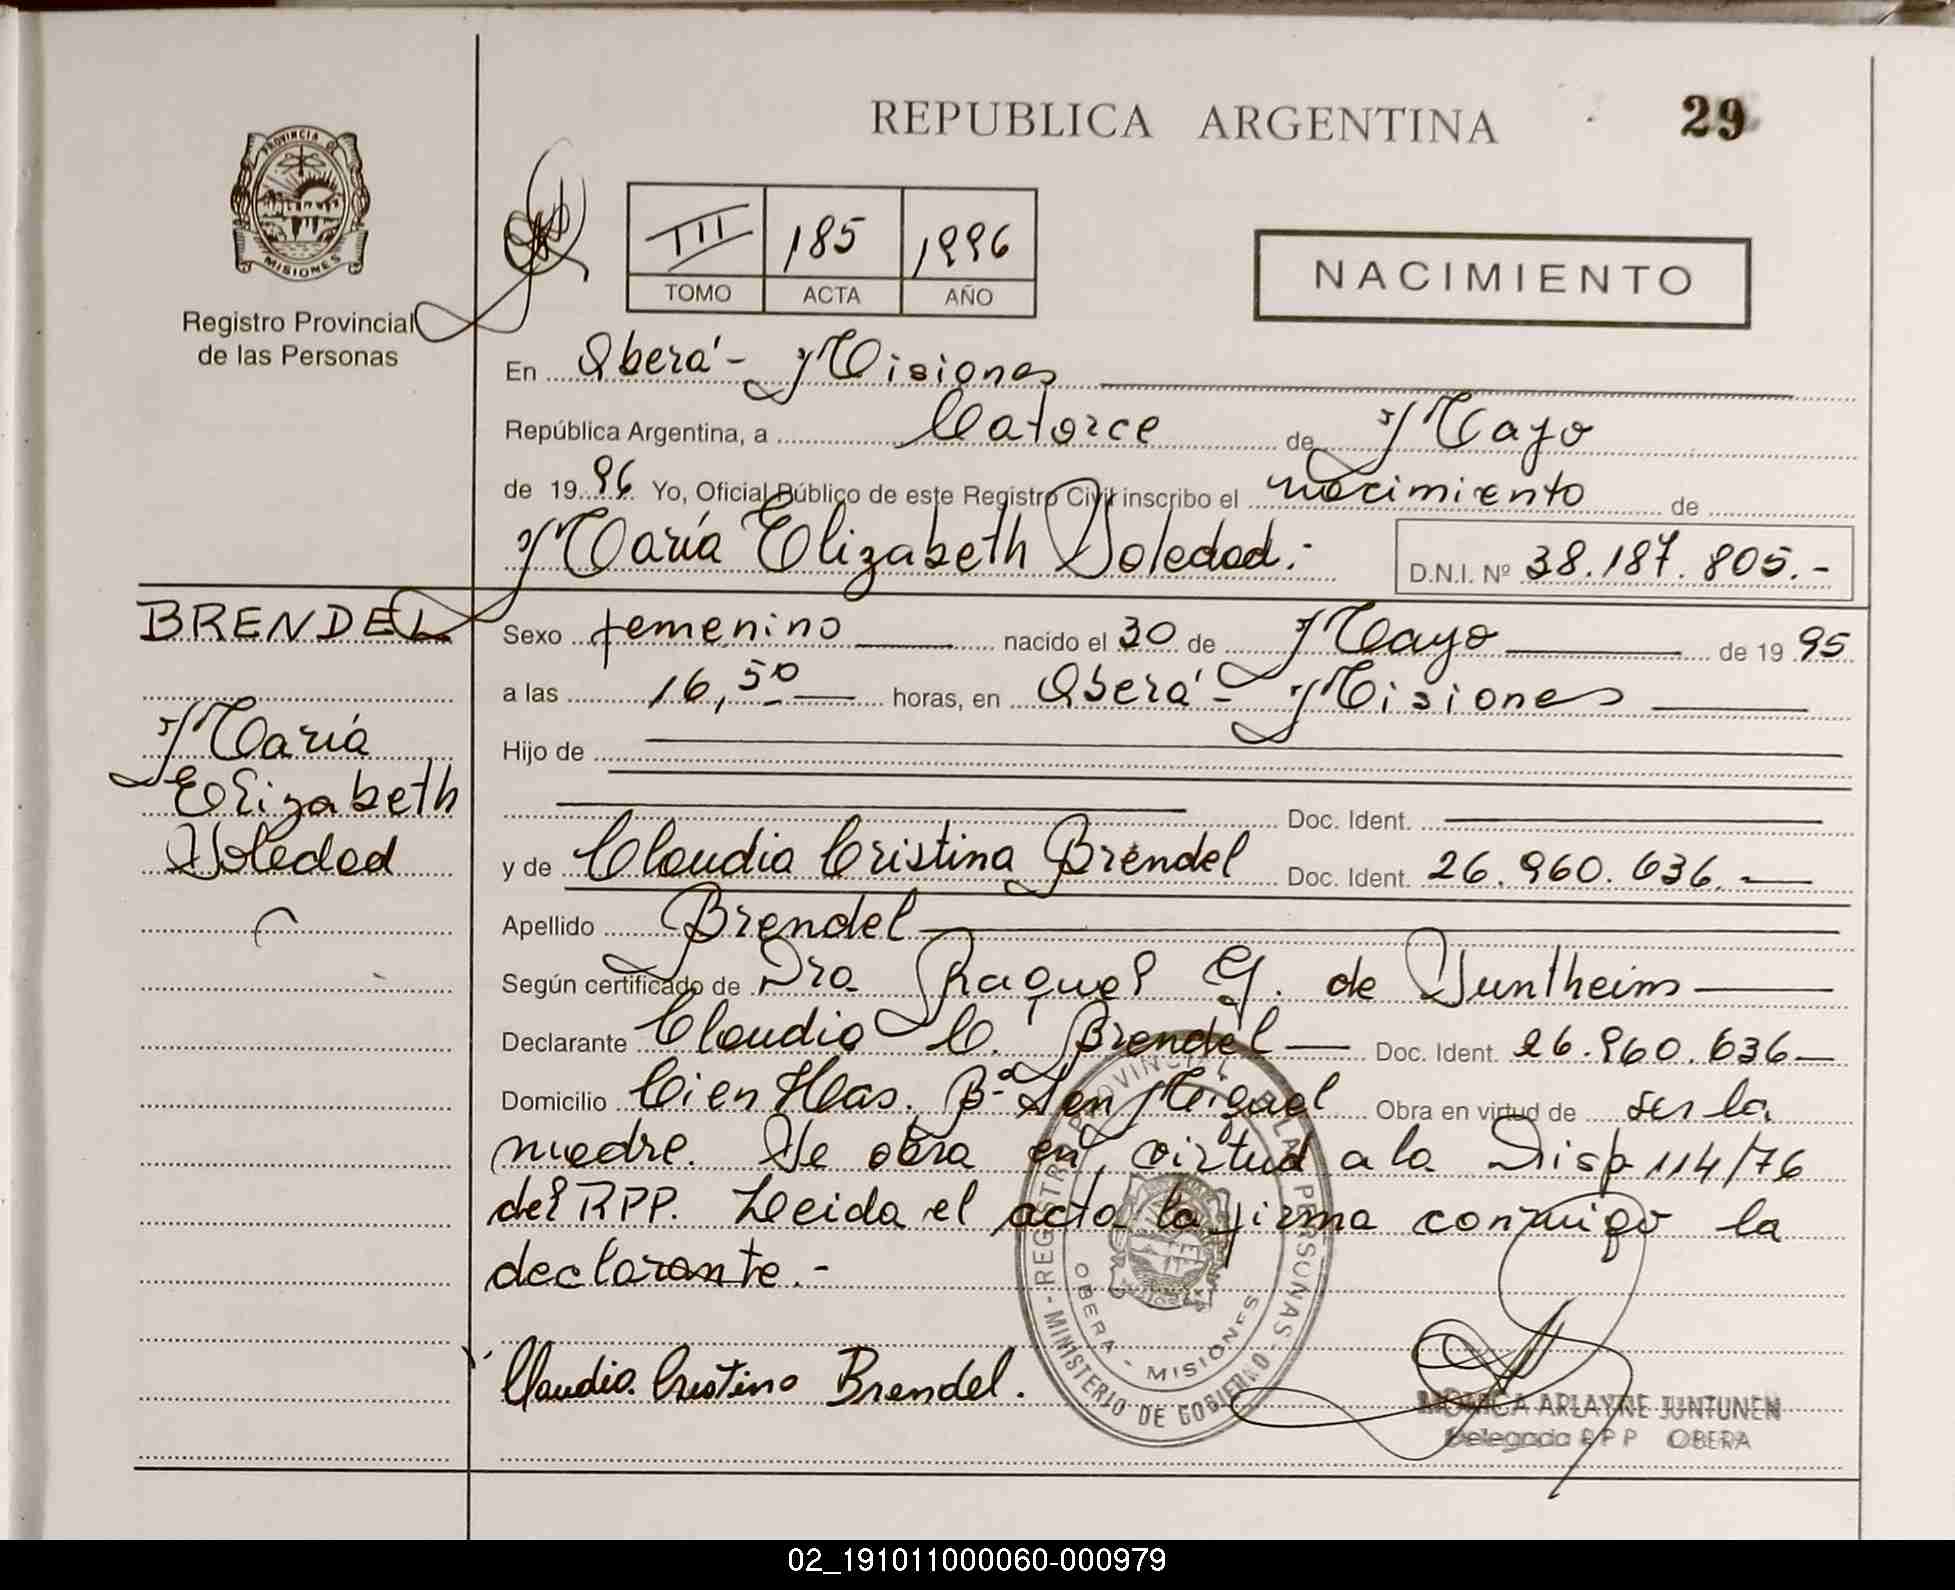 REPUBLICA ARGENTINA
29
PROVINCIA DE
MISIONES
Registro Provincial
de las Personas
III 185 1996
TOMO ACTA AÑO
NACIMIENTO
En Oberá - Misiones
República Argentina, a Catorce de Mayo
de 1996 Yo, Oficial Público de este Registro Civil inscribo el nacimiento de
María Elizabeth Soledad.-
D.N.I. Nº 38.187.805.-
BRENDEL
María
Elizabeth
Soledad
Sexo femenino nacido el 30 de Mayo de 1995
a las 16,50 horas, en Oberá - Misiones
Hijo de
Doc. Ident.
y de Claudia Cristina Brendel Doc. Ident. 26.960.636.
Apellido Brendel
Según certificado de Dra Raquel G. de
Declarante Claudia C. Brendel Doc. Ident. 26.960.636
Domicilio Cien Has. Bº San Miguel Obra en virtud de ser la
madre. Se obra en virtud a la Disp 114/76
del RPP. Leida el acta la firma conmigo la
declarante.-
Claudia Cristina Brendel.
REGISTRO PROVINCIAL DE LAS PERSONAS
- MINISTERIO DE GOBIERNO -
OBERA - MISIONES
MONICA ARLAYNE JUNTUNEN
Delegada R P P OBERA
02_191011000060-000979